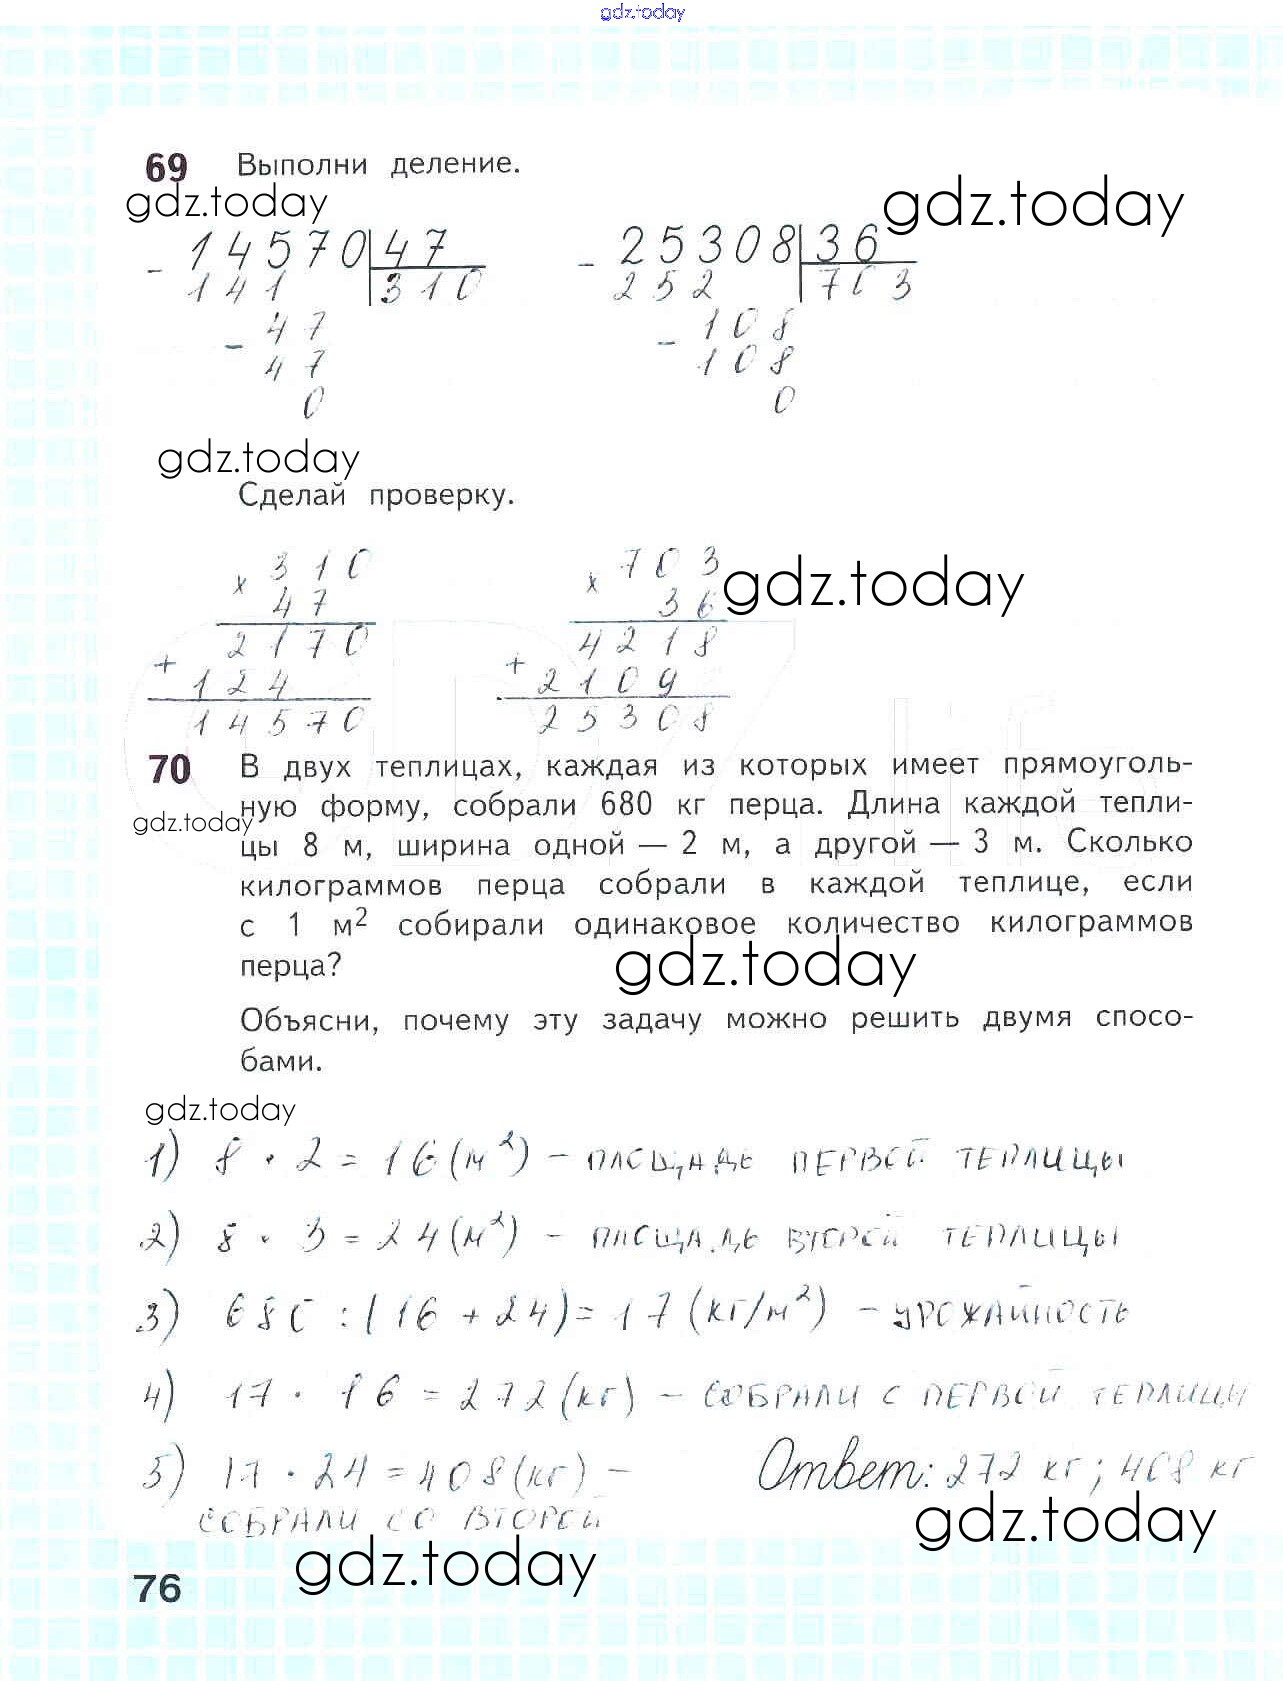 gdz.today
69 Выполни деление.
gdz.today
gdz.today
- 14570 47
141 310
- 47
47
0
- 25308 36
252 703
- 108
108
0
gdz.today
Сделай проверку.
× 310
47
2170
+ 124
14570
× 703
36
4218
+ 2109
25308
gdz.today
70 В двух теплицах, каждая из которых имеет прямоуголь-
gdz.today
ную форму, собрали 680 кг перца. Длина каждой тепли-
цы 8 м, ширина одной — 2 м, а другой — 3 м. Сколько
килограммов перца собрали в каждой теплице, если
с 1 м² собирали одинаковое количество килограммов
перца?
gdz.today
Объясни, почему эту задачу можно решить двумя спосо-
бами.
gdz.today
1) 8 · 2 = 16 (м²) – ПЛОЩАДЬ ПЕРВОЙ ТЕПЛИЦЫ
2) 8 · 3 = 24 (м²) – ПЛОЩАДЬ ВТОРОЙ ТЕПЛИЦЫ
3) 680 : (16 + 24) = 17 (кг/м²) – УРОЖАЙНОСТЬ
4) 17 · 16 = 272 (кг) – СОБРАЛИ С ПЕРВОЙ ТЕПЛИЦЫ
5) 17 · 24 = 408 (кг) –
СОБРАЛИ СО ВТОРОЙ
Ответ: 272 кг; 408 кг
gdz.today
gdz.today
76